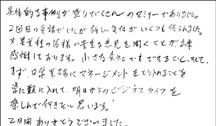 具体的な事例が盛りだくさんのセミナーでありました。
2回目の受講でしたが新しい気付がいくつも得られました。
又、異業種の皆様の貴重な意見を聞くことが出来
感謝しております。小さな会社ですできることからですが、
まず、日常業務にマネージメントをとり入れることを
常に頭に入れて、明日からのビジネスライフを
楽しんで行きたいと思います。
2日間ありがとうございました。